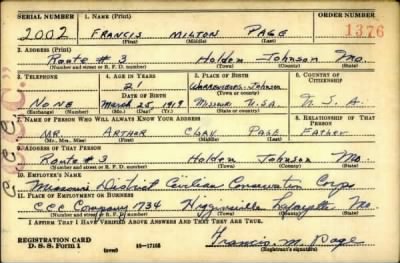 SERIAL NUMBER 1. NAME (Print) ORDER NUMBER
2002 FRANCIS MILTON PAGE 1376
(First) (Middle) (Last)
2. ADDRESS (Print)
Route #3 Holden Johnson Mo.
(Number and street or R. F. D. number) (Town) (County) (State)
3. TELEPHONE 4. AGE IN YEARS 5. PLACE OF BIRTH 6. COUNTRY OF CITIZENSHIP
21 Warrensburg, Johnson
DATE OF BIRTH (Town or county)
None March 25 1919 Missouri U.S.A. U.S.A.
(Exchange) (Number) (Mo.) (Day) (Yr.) (State or country)
7. NAME OF PERSON WHO WILL ALWAYS KNOW YOUR ADDRESS 8. RELATIONSHIP OF THAT PERSON
MR. ARTHUR CLAY PAGE FATHER
(Mr., Mrs., Miss) (First) (Middle) (Last)
9. ADDRESS OF THAT PERSON
Route #3 Holden Johnson Mo.
(Number and street or R. F. D. number) (Town) (County) (State)
10. EMPLOYER'S NAME
Missouri District Civilian Conservation Corps
11. PLACE OF EMPLOYMENT OR BUSINESS
CCC Company 1734 Higginsville Lafayette Mo.
(Number and street or R. F. D. number) (Town) (County) (State)
I AFFIRM THAT I HAVE VERIFIED ABOVE ANSWERS AND THAT THEY ARE TRUE.
REGISTRATION CARD
D. S. S. Form 1 (over) 16-17105 Francis M. Page
(Registrant's signature)